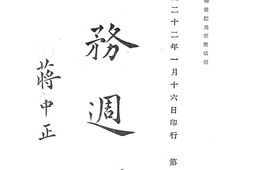 二十二年一月十六日印行 第
務週
蔣中正